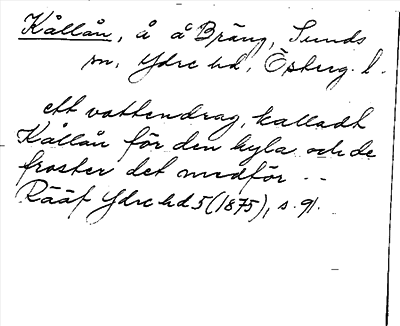 Kållån, å å Bräng, Sunds
sn, Ydre hd, Österg. l.
ett vattendrag, kalladt
Kållån för den kyla och de
froster det medför --
Rääf Ydre hd 5 (1875), s. 91.